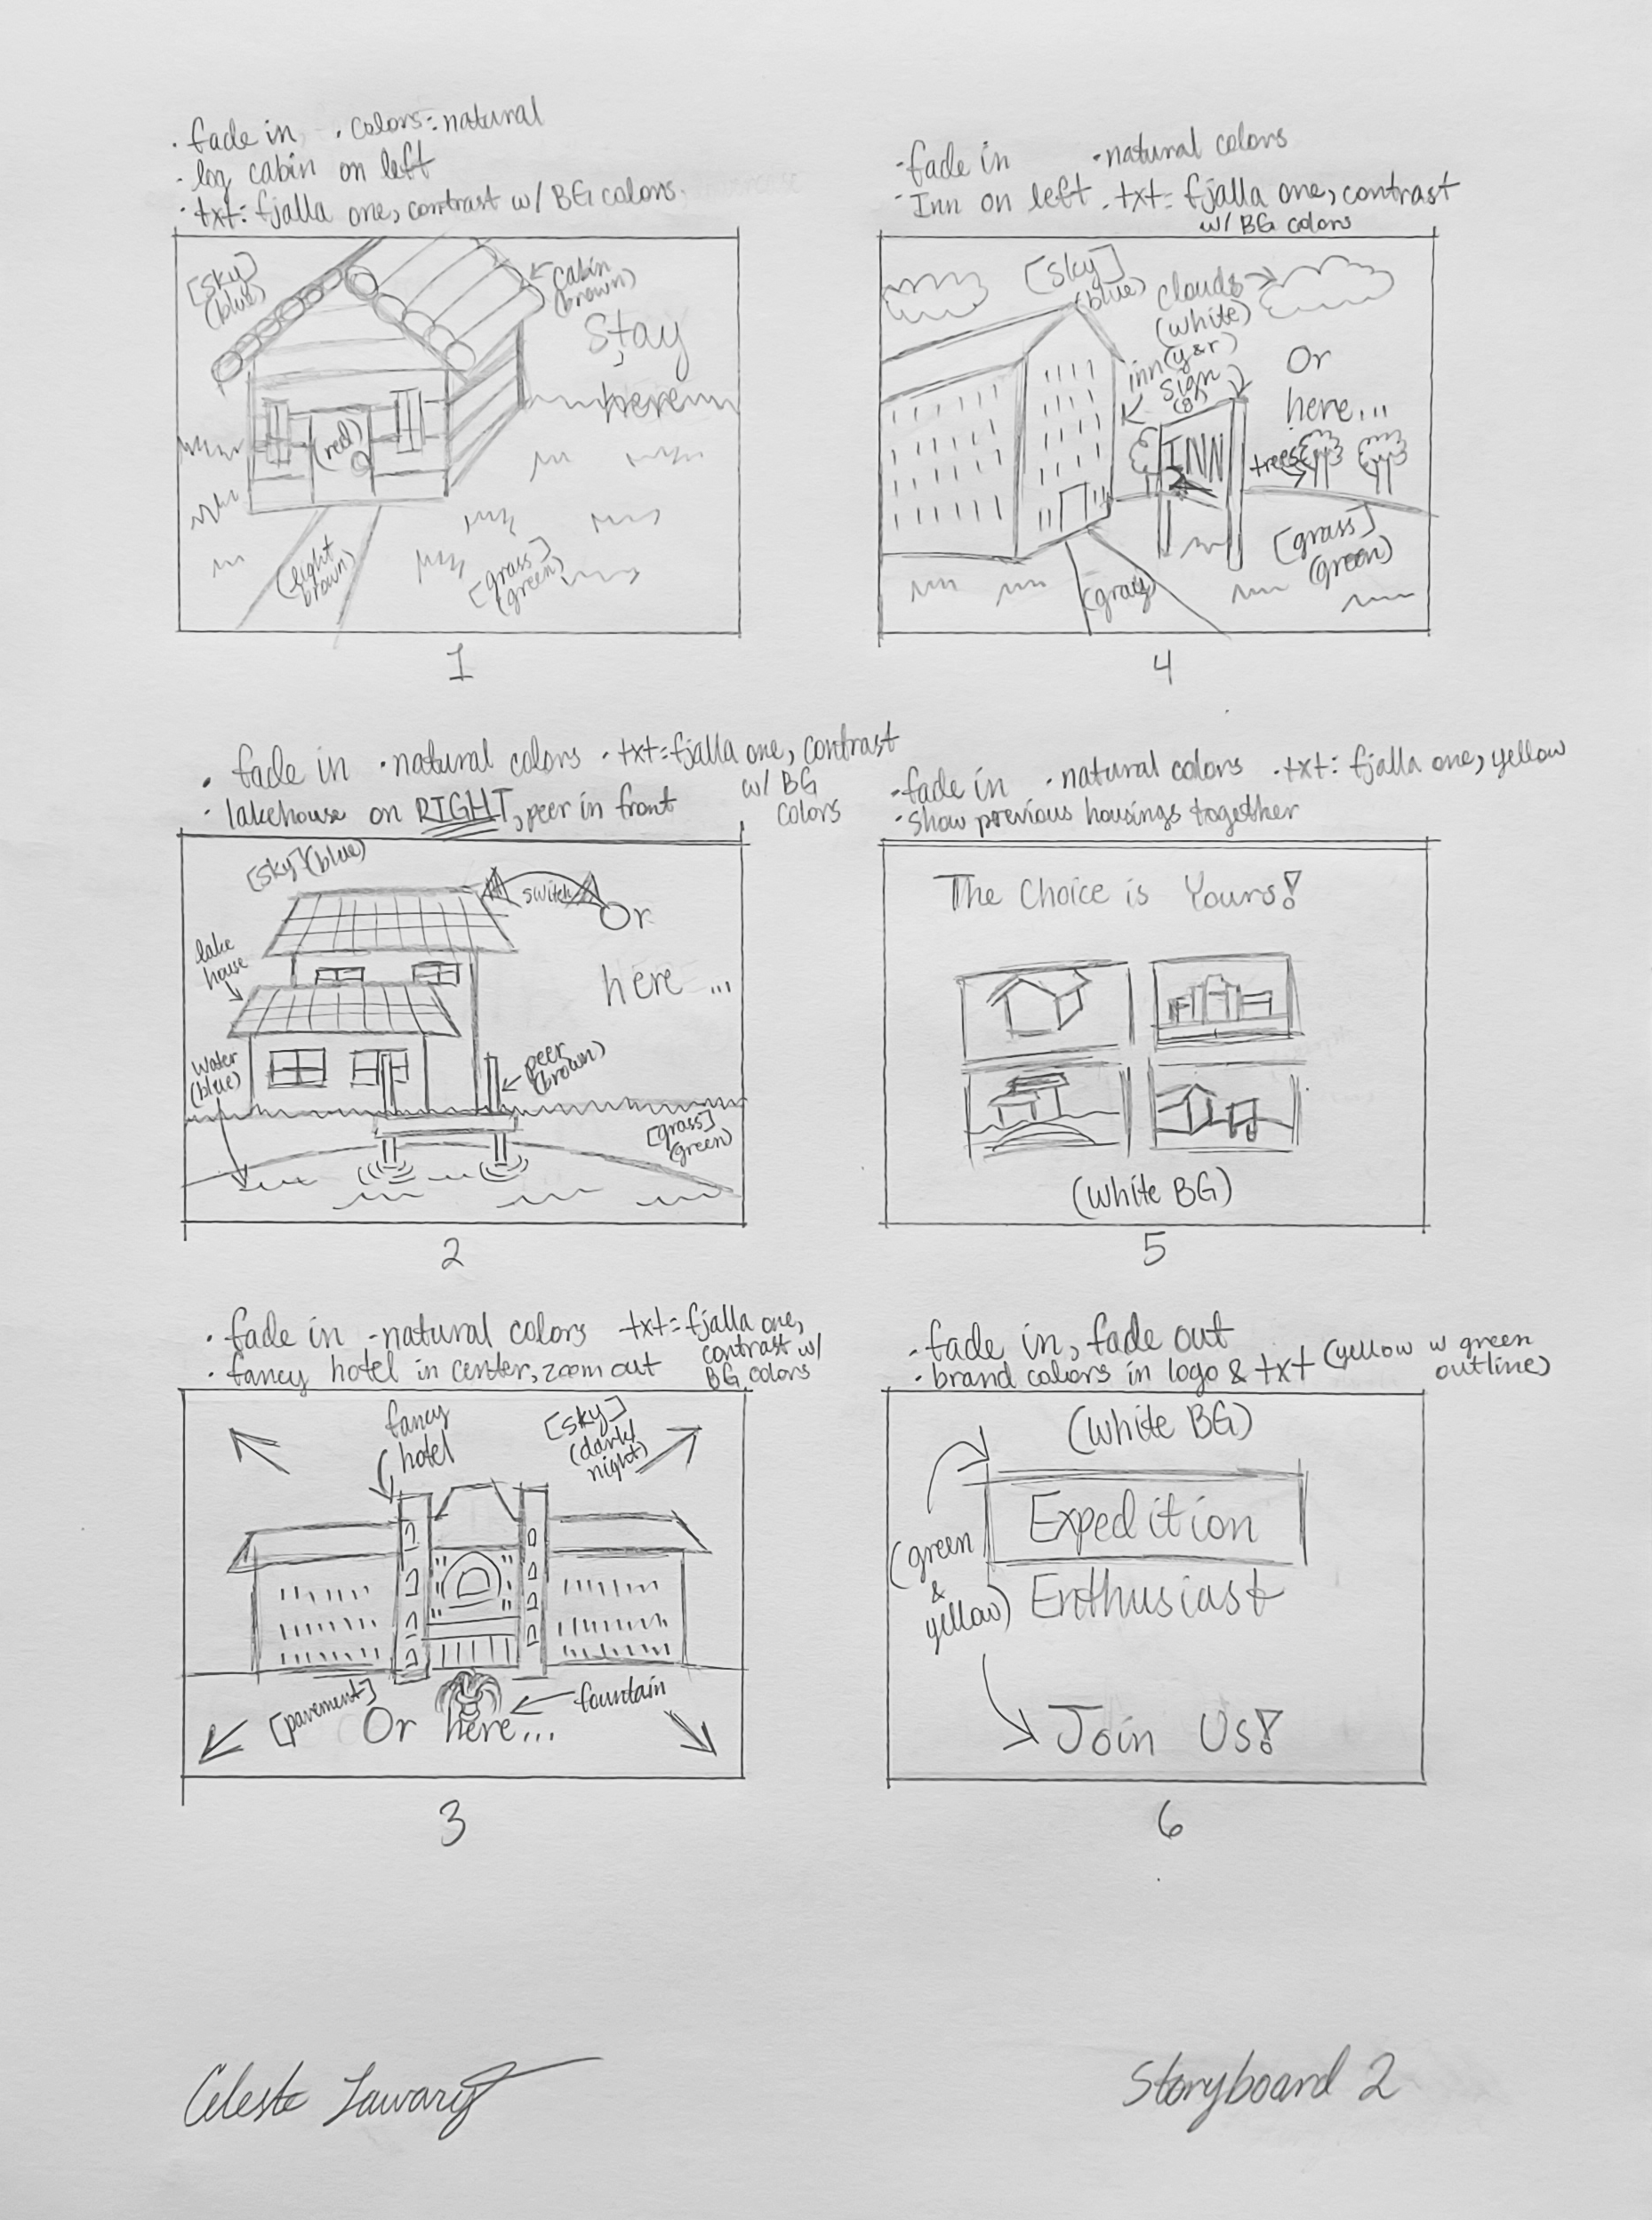 · fade in · colors: natural
· log cabin on left
· txt: fjalla one, contrast w/ BG colors.
[sky]
(blue)
cabin
(brown)
Stay
here
(red)
(light
brown)
[grass]
(green)
1
· fade in · natural colors · txt: fjalla one, contrast
w/ BG
colors
· lakehouse on RIGHT, peer in front
[sky] (blue)
switch
Or
here ...
lake
house
water
(blue)
peer
(brown)
[grass]
(green)
2
· fade in - natural colors txt: fjalla one,
contrast w/
BG colors
· fancy hotel in center, zoom out
fancy
hotel
[sky]
(dark/
night)
[pavement]
fountain
Or here...
3
· fade in · natural colors
· Inn on left · txt: fjalla one, contrast
w/ BG colors
[sky]
(blue)
clouds
(white)
inn (y&r)
sign
Or
here...
INN
trees
[grass]
(green)
(gray)
4
· fade in · natural colors · txt: fjalla one, yellow
· show previous housings together
The Choice is Yours!
(White BG)
5
· fade in, fade out
· brand colors in logo & txt (yellow w green
outline)
(White BG)
Expedition
Enthusiast
(green
&
yellow)
Join Us!
6
Celeste
Storyboard 2